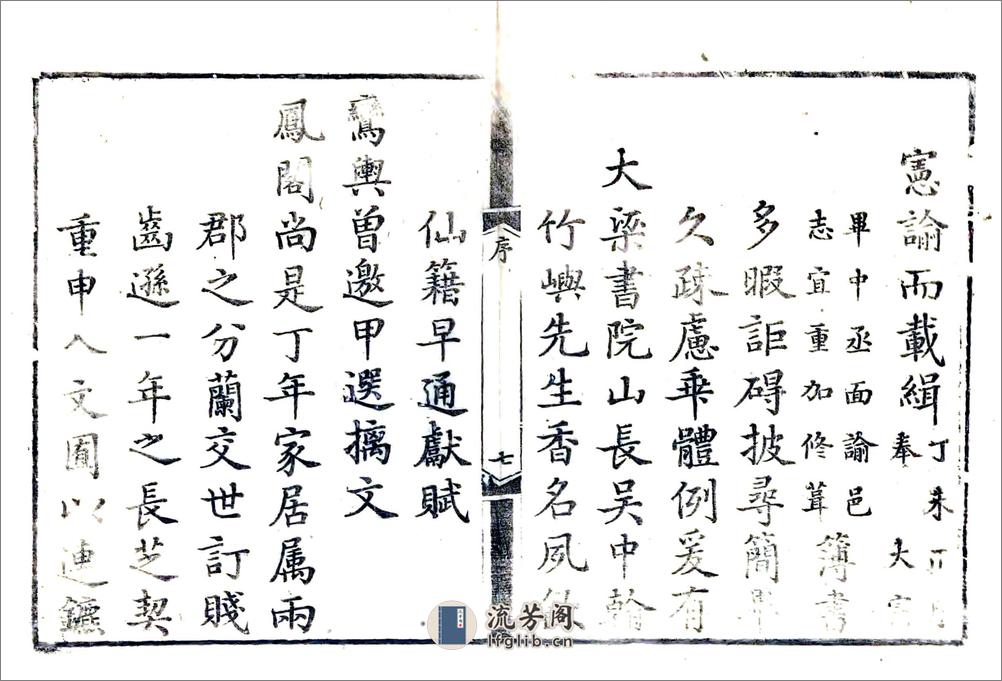 憲諭而載緝丁未正月奉大憲
畢中丞面諭邑志宜重加修葺簿書
多暇詎碍披尋簡畢
久疎慮乖體例爰有
大梁書院山長吳中翰
竹嶼先生香名夙
序
七
仙籍早通獻賦
鸞輿曾邀甲選摛文
鳳閣尚是丁年家居属兩
郡之分蘭交世訂賤
齒遜一年之長芝契
重申入文圃以連鑣
流芳阁
lfglib.cn